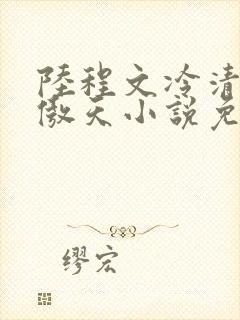 陸程文冷清
傲天小說免
缪宏